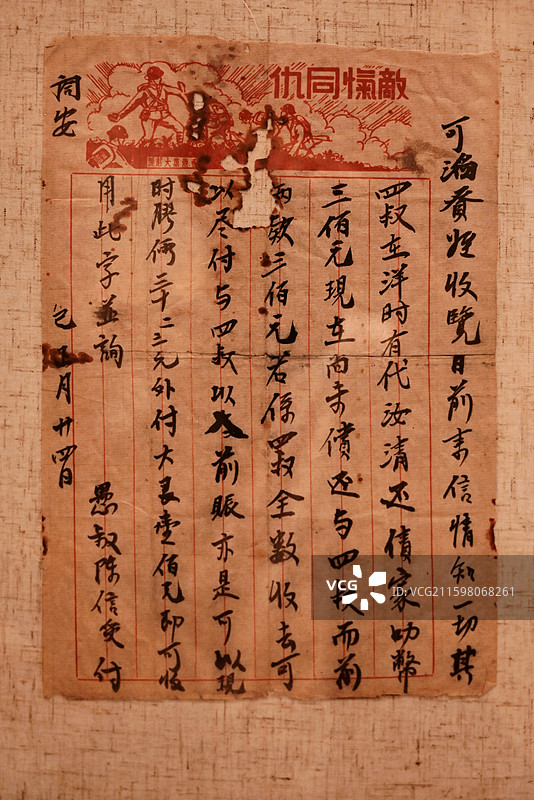 敵愾同仇
可滿賢姪收覽日前來信情知一切其
四叔在洋時有代汝清还債家叻幣
三佰元現在尚未償还与四叔而前
欵三佰元若係四叔全数收去可
以尽付与四叔以入前賬亦是可以現
時膠価三十二三元外付大艮壹佰元即可收
用此字並詢
近安
愚叔陈信 付
元正月廿四日
VCG
VCG.COM
ID:VCG211598068261